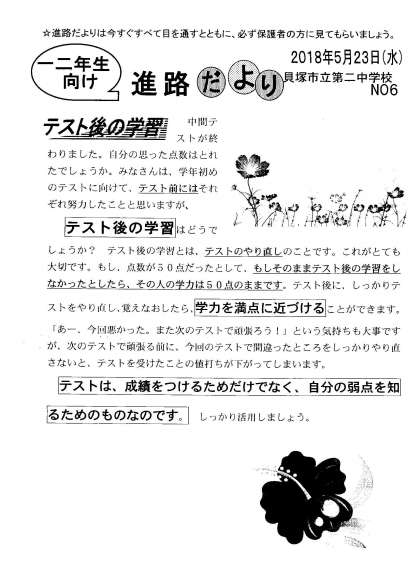 ☆進路だよりは今すぐすべて目を通すとともに、必ず保護者の方に見てもらいましょう。
一二年生
向け
進路だより
2018年5月23日(水)
貝塚市立第二中学校
NO6
テスト後の学習
中間テ
ストが終
わりました。自分の思った点数はとれ
たでしょうか。みなさんは、学年初め
のテストに向けて、テスト前にはそれ
ぞれ努力したことと思いますが、
テスト後の学習はどうで
しょうか？　テスト後の学習とは、テストのやり直しのことです。これがとても
大切です。もし、点数が５０点だったとして、もしそのままテスト後の学習をし
なかったとしたら、その人の学力は５０点のままです。テスト後に、しっかりテ
ストをやり直し、覚えなおしたら、学力を満点に近づけることができます。
「あー、今回悪かった。また次のテストで頑張ろう！」という気持ちも大事です
が、次のテストで頑張る前に、今回のテストで間違ったところをしっかりやり直
さないと、テストを受けたことの値打ちが下がってしまいます。
テストは、成績をつけるためだけでなく、自分の弱点を知
るためのものなのです。　しっかり活用しましょう。